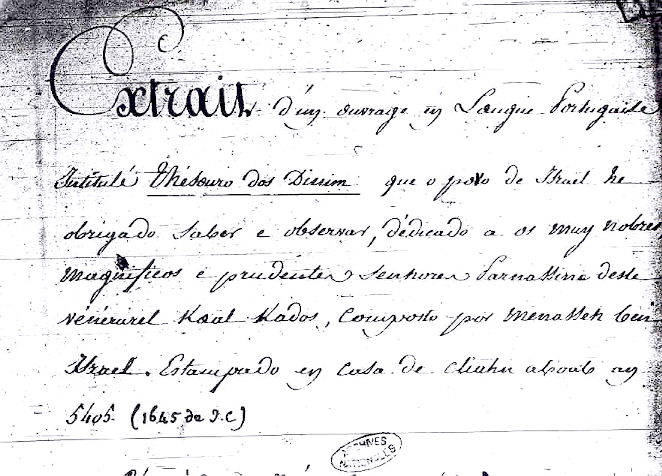 Extrait d'un ouvrage en Langue Portugaise
Intitulé Thésouro dos Dinim que o povo de Israel he
obrigado saber e observar, dédicado a os muy nobres
magnificos e prudentes senhores Parnassins deste
vénéravel Kaal Kados, Composto por Menasseh ben
Israel. Estampado en casa de aboab an
5405 (1645 de J.C)
ARCHIVES
NATIONALES